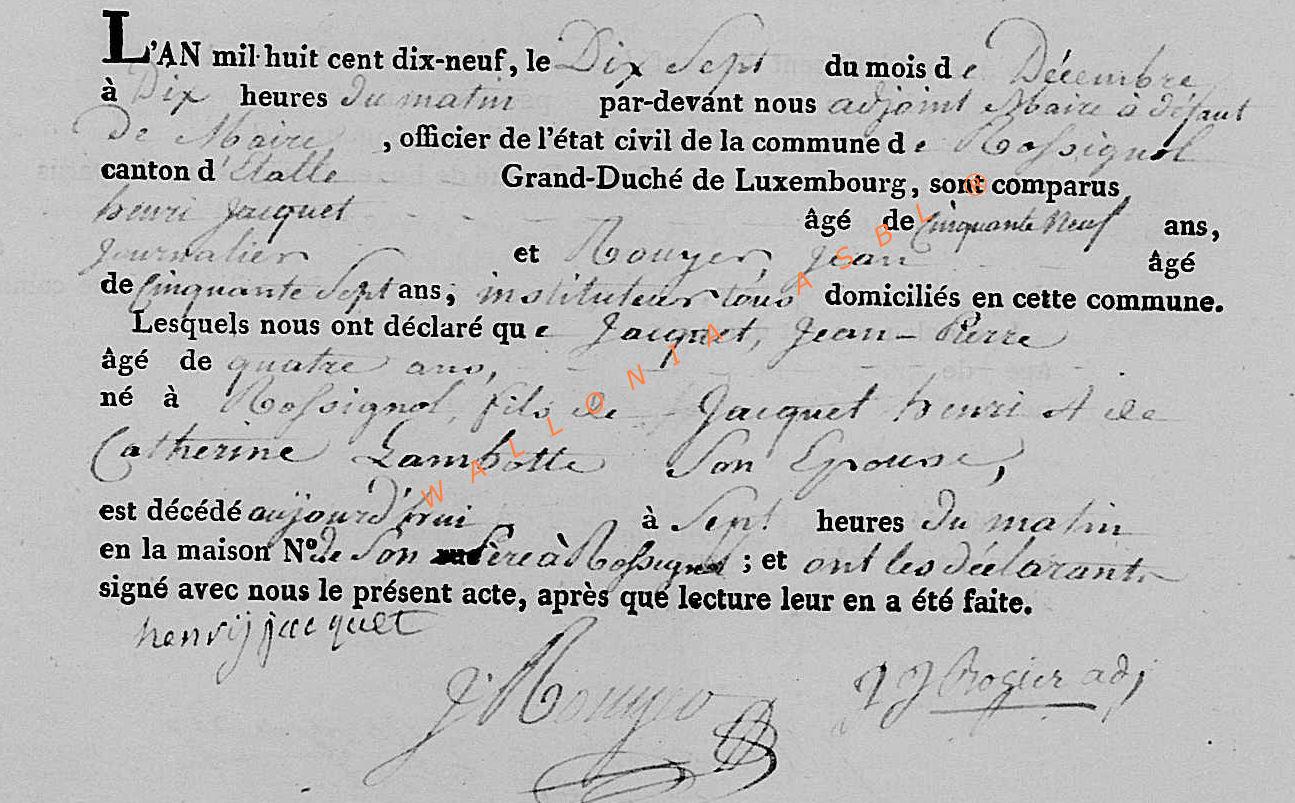 L'AN mil huit cent dix-neuf, le Dix Sept du mois de Décembre
à Dix heures du matin par-devant nous adjoint Maire à défaut
De Maire, officier de l'état civil de la commune de Rossignol
canton d'Etalle Grand-Duché de Luxembourg, sont comparus
henri Jacquet âgé de Cinquante Neuf ans,
Journalier et Rouyer, Jean âgé
de Cinquante Sept ans; instituteur tous domiciliés en cette commune.
Lesquels nous ont déclaré que Jacquet, Jean-Pierre
âgé de quatre ans,
né à Rossignol, fils de Jacquet henri et de
Catherine Lambotte Son Epouse,
est décédé aujourd'hui à Sept heures du matin
en la maison N.º de Son Père à Rossignol ; et ont les déclarants
signé avec nous le présent acte, après que lecture leur en a été faite.
henrij jacquet
J. Rouyer
J J Rogier adj
WALLONIA ASBL ©